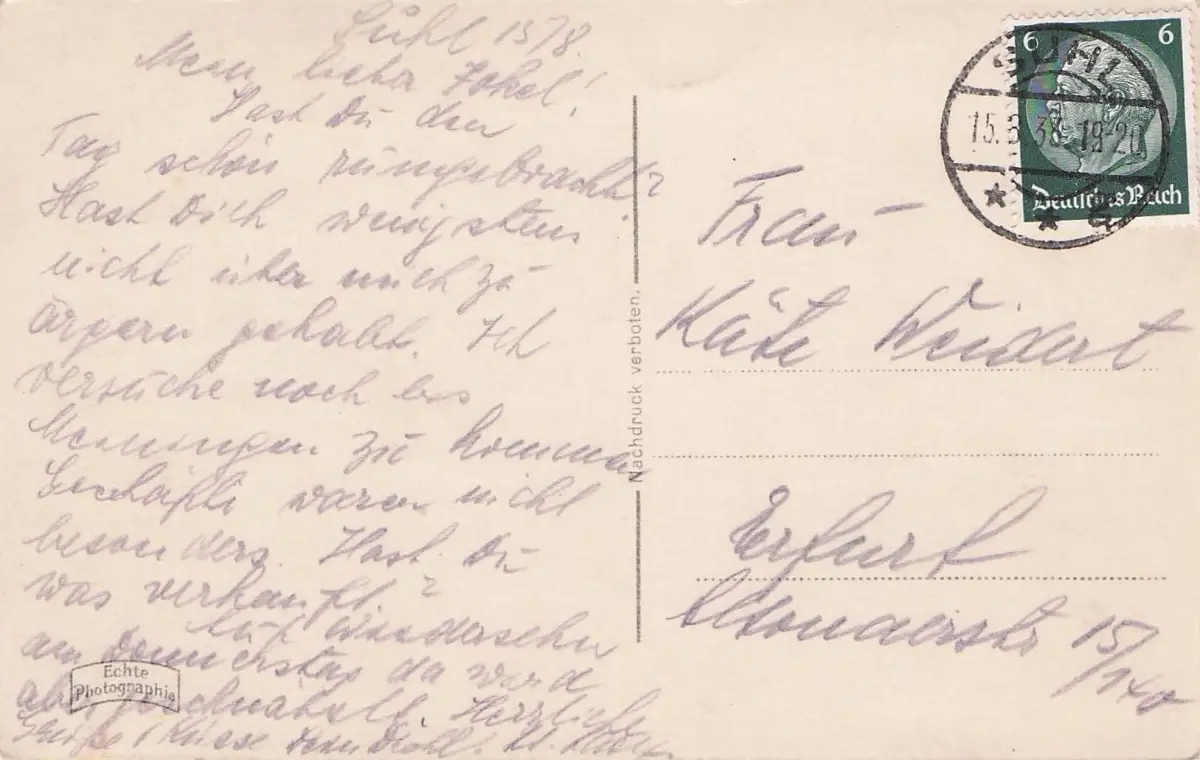 Suhl 15/8.
Mein lieber
Hast Du den
Tag schön rumgebracht?
Hast Dich wenigstens
nicht über mich zu
ärgern gehabt. Ich
versuche noch bis
Meiningen zu kommen
Geschäfte waren nicht
besonders. Hast Du
was verkauft?
Auf Wiedersehn
am Donnerstag da wird
aber Herzliche
Grüße Küsse dein
Echte
Photographie
Nachdruck verboten.
6 6
SUHL
15. 19-20
Deutsches Reich
Frau
Käte Weidert
Erfurt
15/